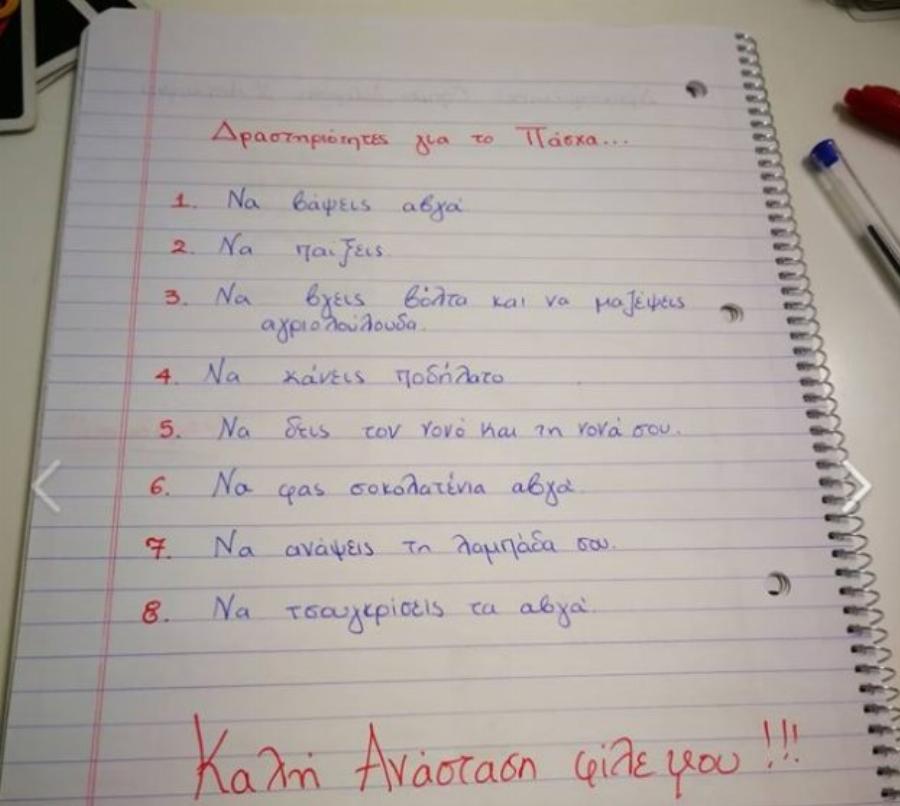 Δραστηριότητες για το Πάσχα...
1. Να βάψεις αβγά
2. Να παίξεις
3. Να βγεις βόλτα και να μαζέψεις
αγριολούλουδα.
4. Να κάνεις ποδήλατο
5. Να δεις τον νονό και τη νονά σου.
6. Να φας σοκολατένια αβγά
7. Να ανάψεις τη λαμπάδα σου.
8. Να τσουγκρίσεις τα αβγά.
Καλή Ανάσταση φίλε μου!!!